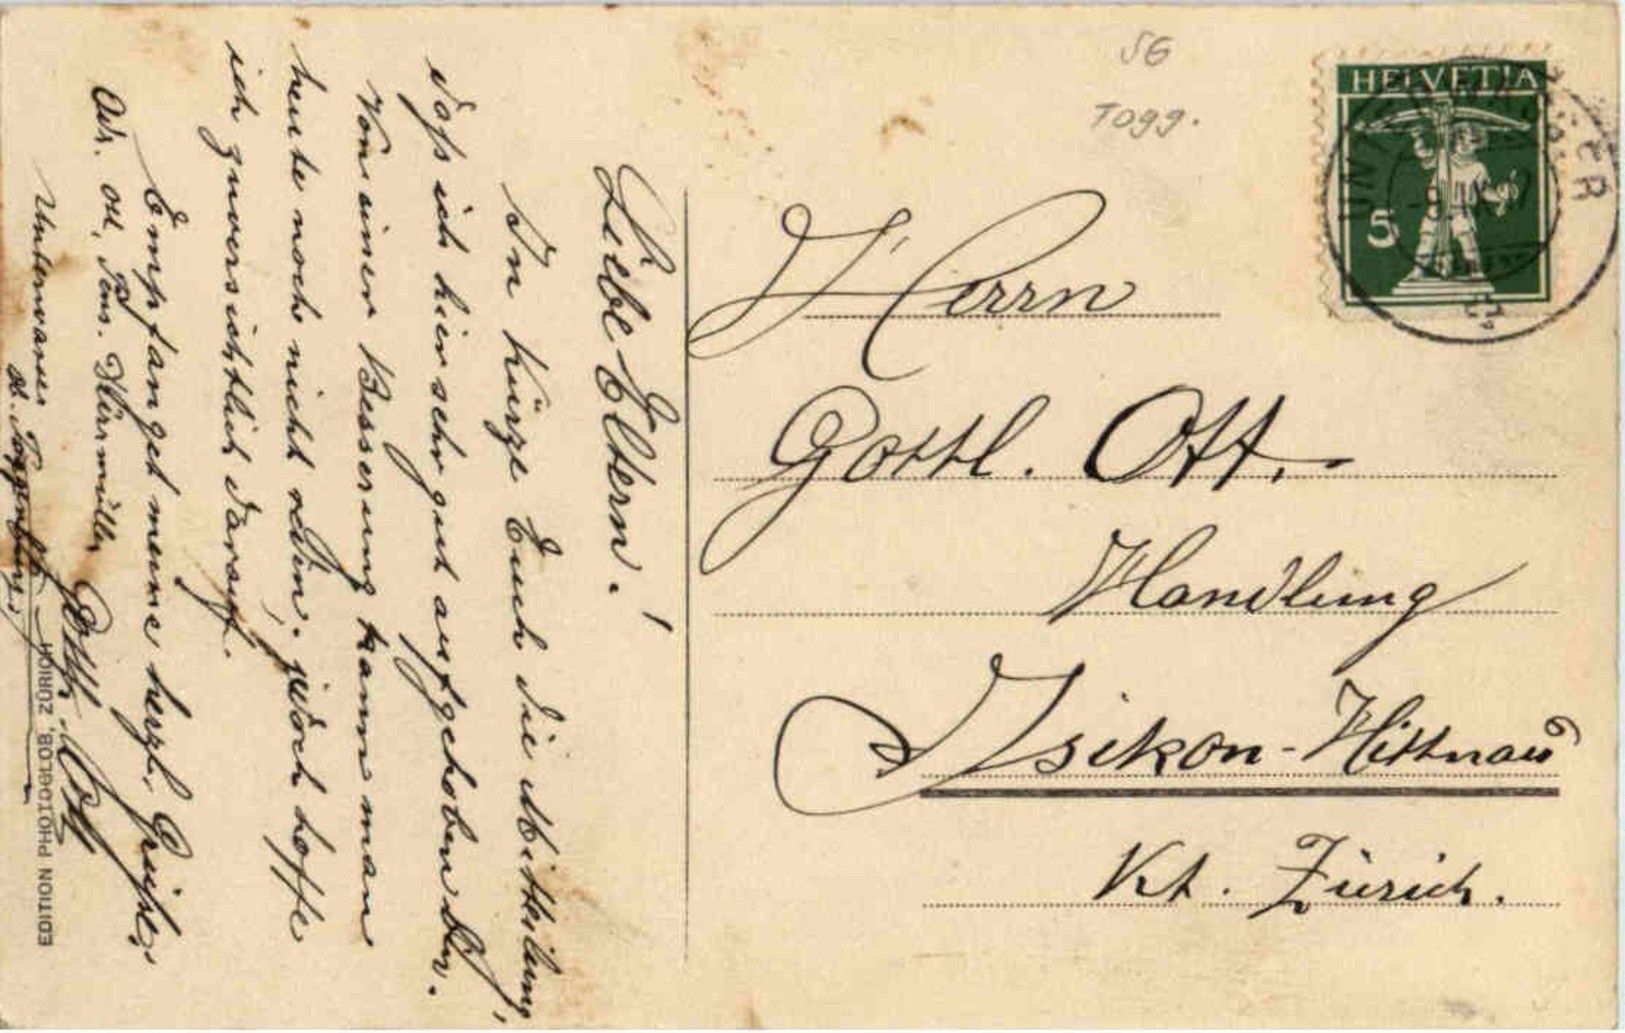 Liebe Eltern!
In Kürze Euch die Mitteilung,
daß ich hier sehr gut aufgehoben bin.
Von einer Besserung kann man
heute noch nicht reden, jedoch hoffe
ich zuversichtlich darauf.
Empfanget meine herzl. Grüße,
Ad. Ott, Pens.
Gottl. Ott
Unterwasser
Ob. Toggenburg.
EDITION PHOTOGLOB, ZÜRICH
SG
Togg.
HELVETIA
5
Herrn
Gottl. Ott.
Handlung
Isikon-Hittnau
Kt. Zürich.